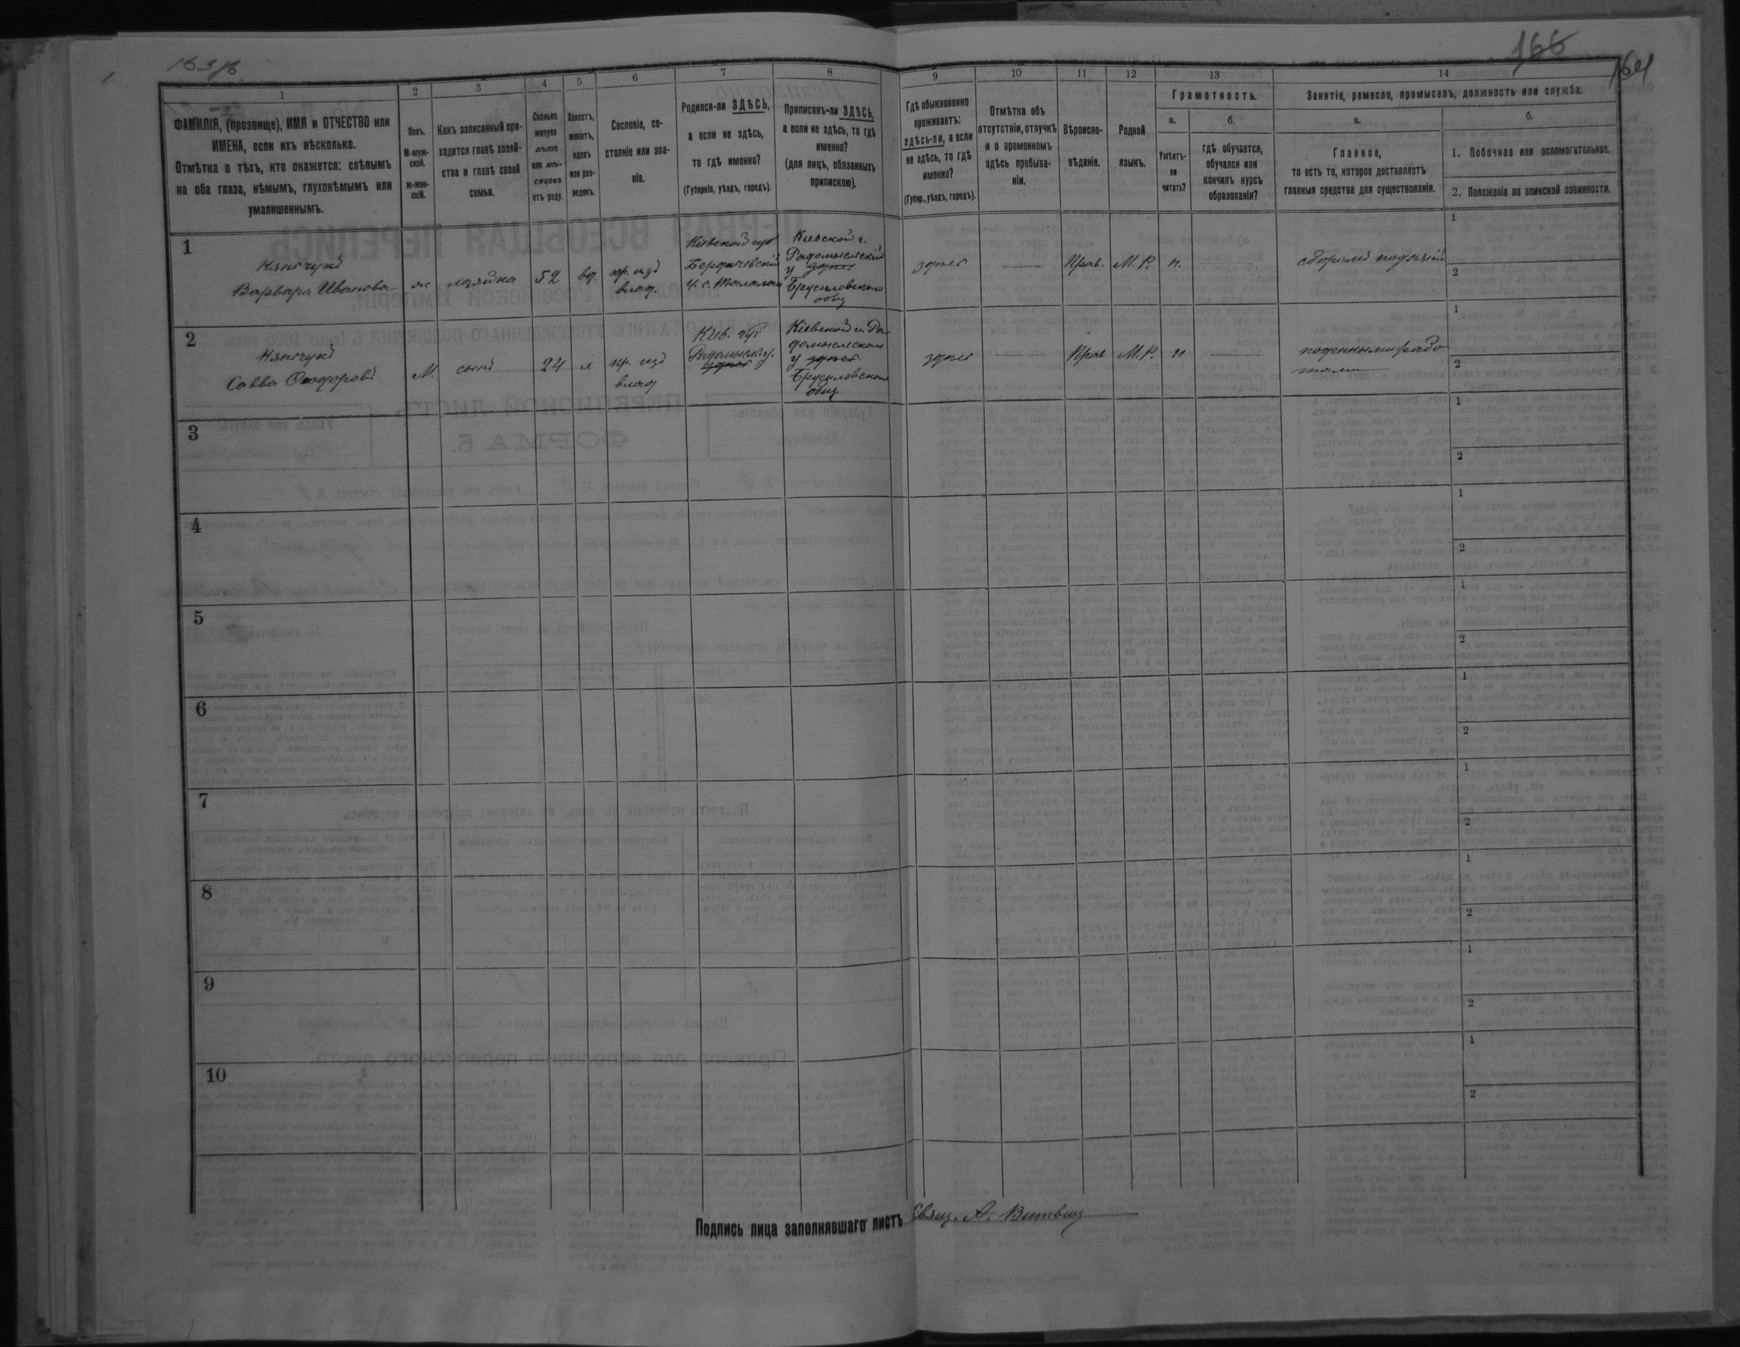 166
164
1
ФАМИЛІЯ, (прозвище), ИМЯ и ОТЧЕСТВО или
ИМЕНА, если ихъ нѣсколько.
Отмѣтка о тѣхъ, кто окажется: слѣпымъ
на оба глаза, нѣмымъ, глухонѣмымъ или
умалишеннымъ.
2
Полъ.
М-муж-
ской.
ж-жен-
скій.
3
Какъ записанный при-
ходится главѣ хозяй-
ства и главѣ своей
семьи.
4
Сколько
минуло
лѣтъ
или мѣ-
сяцевъ
отъ роду.
5
Холостъ,
женатъ,
вдовъ
или раз-
веденъ.
6
Сословіе, со-
стояніе или зва-
ніе.
7
Родился-ли ЗДѢСЬ,
а если не здѣсь,
то гдѣ именно?
(Губернія, уѣздъ, городъ).
8
Приписанъ-ли ЗДѢСЬ,
а если не здѣсь, то гдѣ
именно?
(для лицъ, обязанныхъ
припискою).
9
Гдѣ обыкновенно
проживаетъ:
здѣсь-ли, а если
не здѣсь, то гдѣ
именно?
(Губер., уѣздъ, городъ).
10
Отмѣтка объ
отсутствіи, отлучкѣ
и о временномъ
здѣсь пребыва-
ніи.
11
Вѣроиспо-
вѣданіе.
12
Родной
языкъ.
13
Грамотность.
а.
Умѣетъ-
ли
читать?
б.
Гдѣ обучается,
обучался или
кончилъ курсъ
образованія?
14
Занятіе, ремесло, промыселъ, должность или служба.
а.
Главное,
то есть то, которое доставляетъ
главныя средства для существованія.
б.
1. Побочное или вспомогательное.
2. Положеніе по воинской повинности.
1
Варвара Иванова
ж
хозяйка
52
вд.
кр. изъ
влад.
Кіевской губ
Бердичевскій
у. с.
Кіевской г.
Радомысльскій
у здѣсь
Брусиловскаго
общ
здѣсь
Прав.
М. Р.
н.
1
2
2
Савва Ѳеодоровъ
М.
сынъ
24
х
кр. изъ
влад
Кіев. губ
Радомысл у.
здѣсь
Кіевской г. Ра
домысльскаго
у здѣсь
Брусиловскаго
общ
здѣсь
Прав
М. Р.
н
поденными рабо
тами
1
2
3
1
2
4
1
2
5
1
2
6
1
2
7
1
2
8
1
2
9
1
2
10
1
2
Подпись лица заполнявшаго листъ Свящ. А.